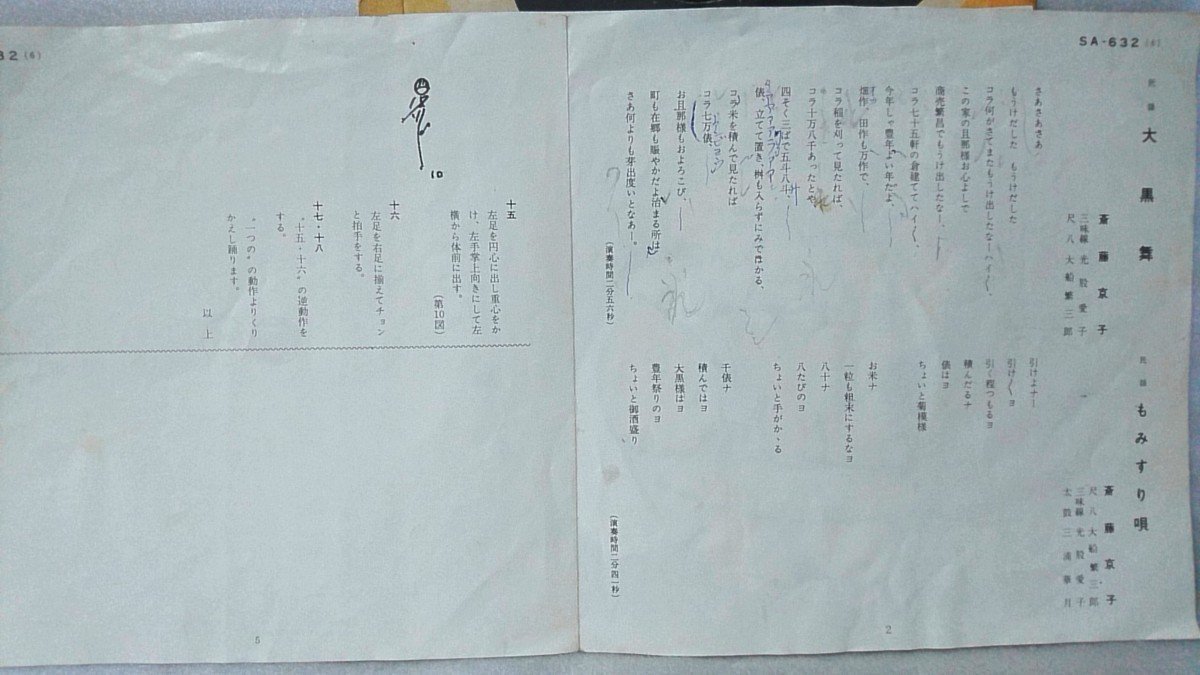 SA-632 (6)
民謡 大黒舞
斎藤京子
三味線 光殿愛子
尺八 大船繁三郎
さあさあさあ
もうけだした もうけだした
コラ何がさてまたもうけ出したなーハイ〱、
この家の旦那様お心よしで
商売繁昌でもうけ出したなー、
コラ七十五軒の倉建ててハイ〱、
今年しゃ豊年よい年だよ、
畑作、田作も万作で、
コラ稲を刈って見たれば、
コラ十万八千あったとや、
四そく三ばで五斗八斗、
俵、立てて置き、桝も入らずにみではかる、
コラ米を積んで見たれば
コラ七万俵、
お旦那様もおよろこび、
町も在郷も賑やかだよ治まる所は、
さあ何よりも芽出度いとなあー。
(演奏時間二分五六秒)
民謡 もみすり唄
斎藤京子
尺八 大船繁三郎
三味線 光殿愛子
太鼓 三浦華月
引けよナー
引け〱ヨ
引く程つもるヨ
積んだるナ
俵はヨ
ちょいと菊模様
お米ナ
一粒も粗末にするなヨ
八十ナ
八たびのヨ
ちょいと手がかゝる
千俵ナ
積んではヨ
大黒様はヨ
豊年祭りのヨ
ちょいと御酒盛り
(演奏時間二分四一秒)
2
32 (6)
10
十五
左足を円心に出し重心をか
け、左手掌上向きにして左
横から体前に出す。
(第10図)
十六
左足を右足に揃えてチョン
と拍手をする。
十七・十八
〝十五・十六〟の逆動作を
する。
〝一つの〟の動作よりくり
かえし踊ります。
以上
5